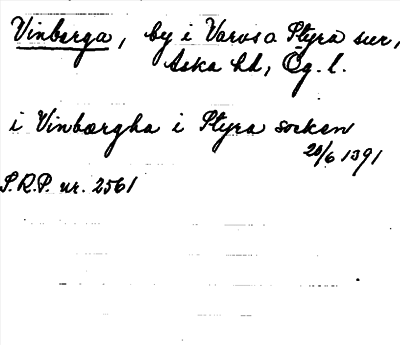 Vinberga, by i Varv o Styra snr,
Aska hd, Ög. l.
i Vinbærgha i Styra sokken
20/6 1391
S.R.P. nr. 2561